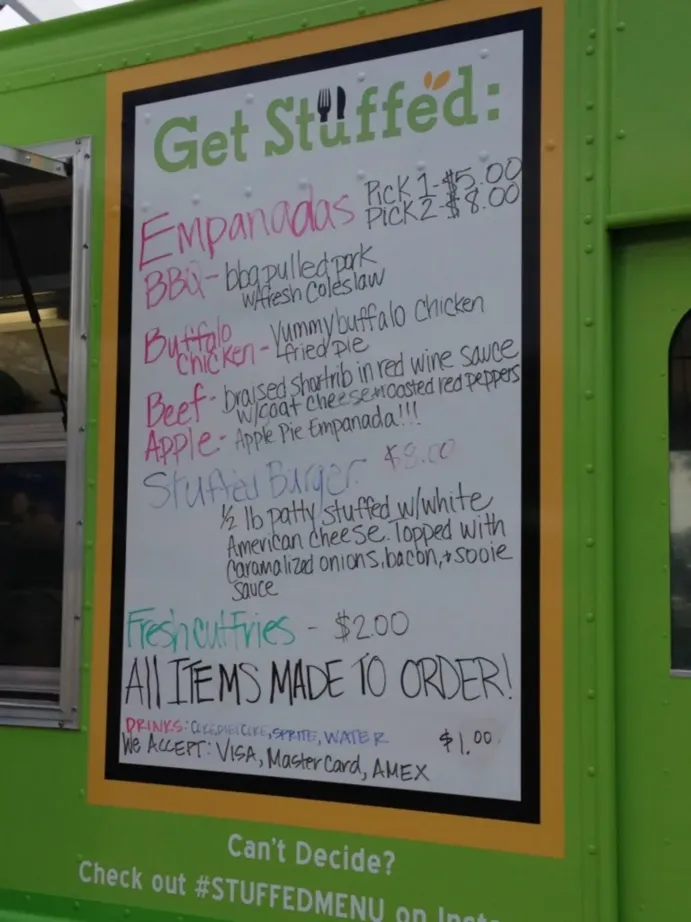 Get Stuffed:
Empanadas Pick 1-$5.00
Pick 2-$8.00
BBQ- bbq pulled pork
w/fresh Coleslaw
Buffalo
Chicken - Yummy buffalo Chicken
fried Pie
Beef- braised shortrib in red wine sauce
w/goat cheese+roasted red peppers
Apple- Apple Pie Empanada!!!
Stuffed Burger $8.00
½ lb patty stuffed w/white
American cheese. Topped with
Caramalized onions, bacon, + sooie
sauce
Fresh cut Fries - $2.00
All ITEMS MADE TO ORDER!
DRINKS: COKE, DIET COKE, SPRITE, WATER $1.00
We ACCEPT: VISA, MasterCard, AMEX
Can't Decide?
Check out #STUFFEDMENU on Insta